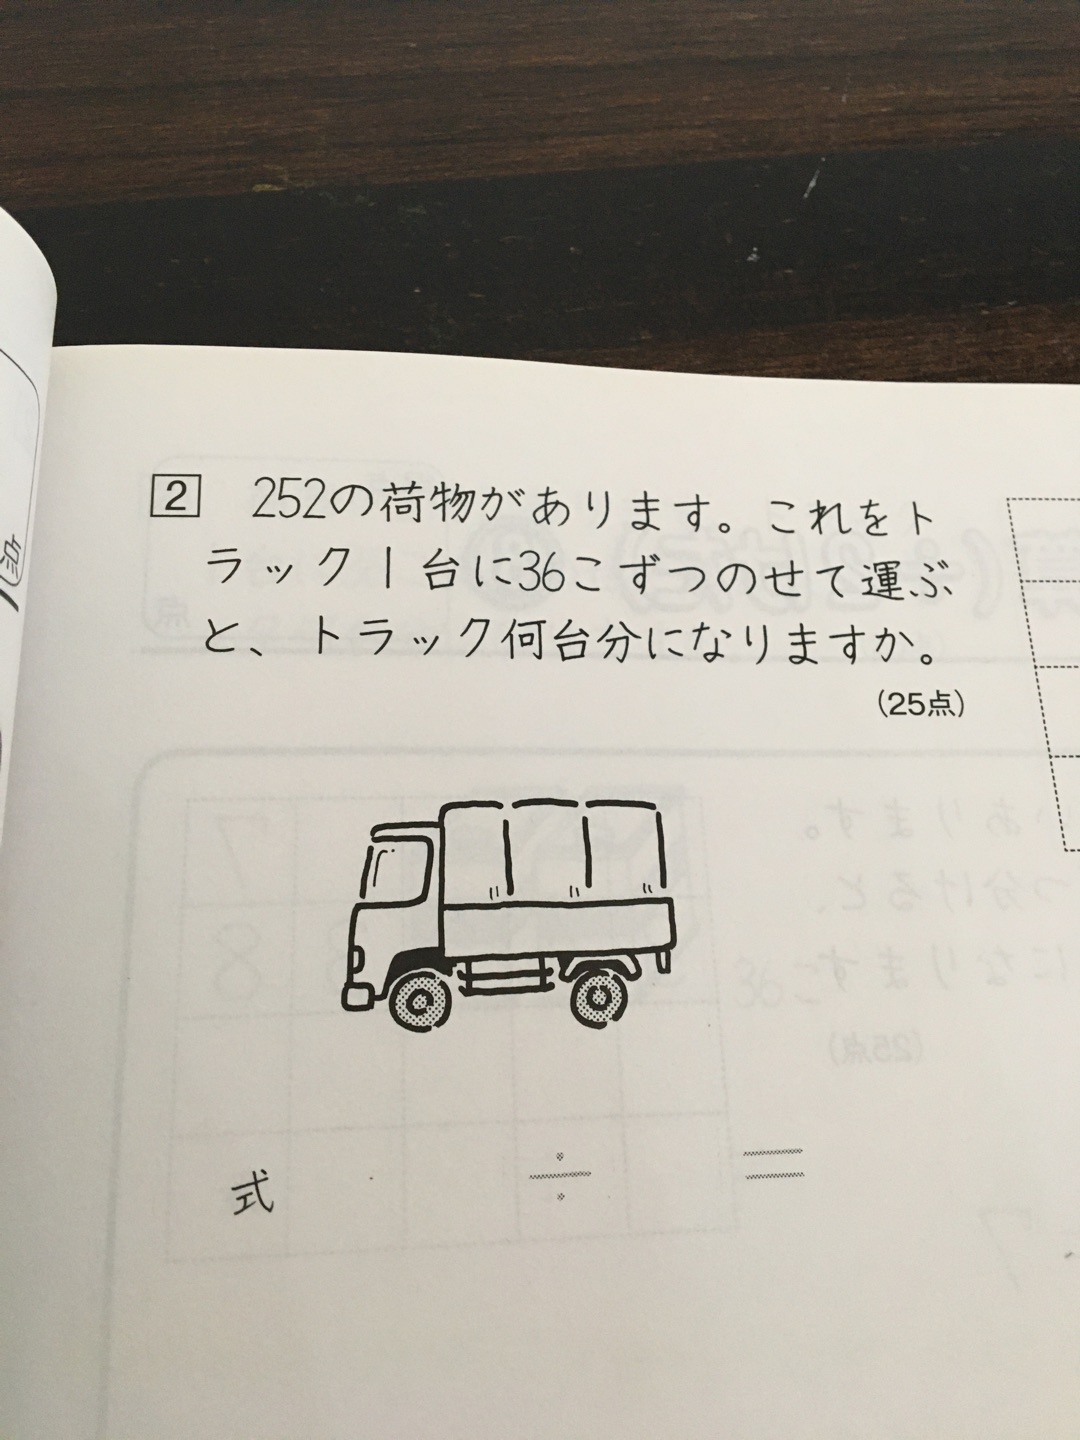 2 252の荷物があります。これをト
ラック1台に36こずつのせて運ぶ
と、トラック何台分になりますか。
(25点)
式 ÷ =